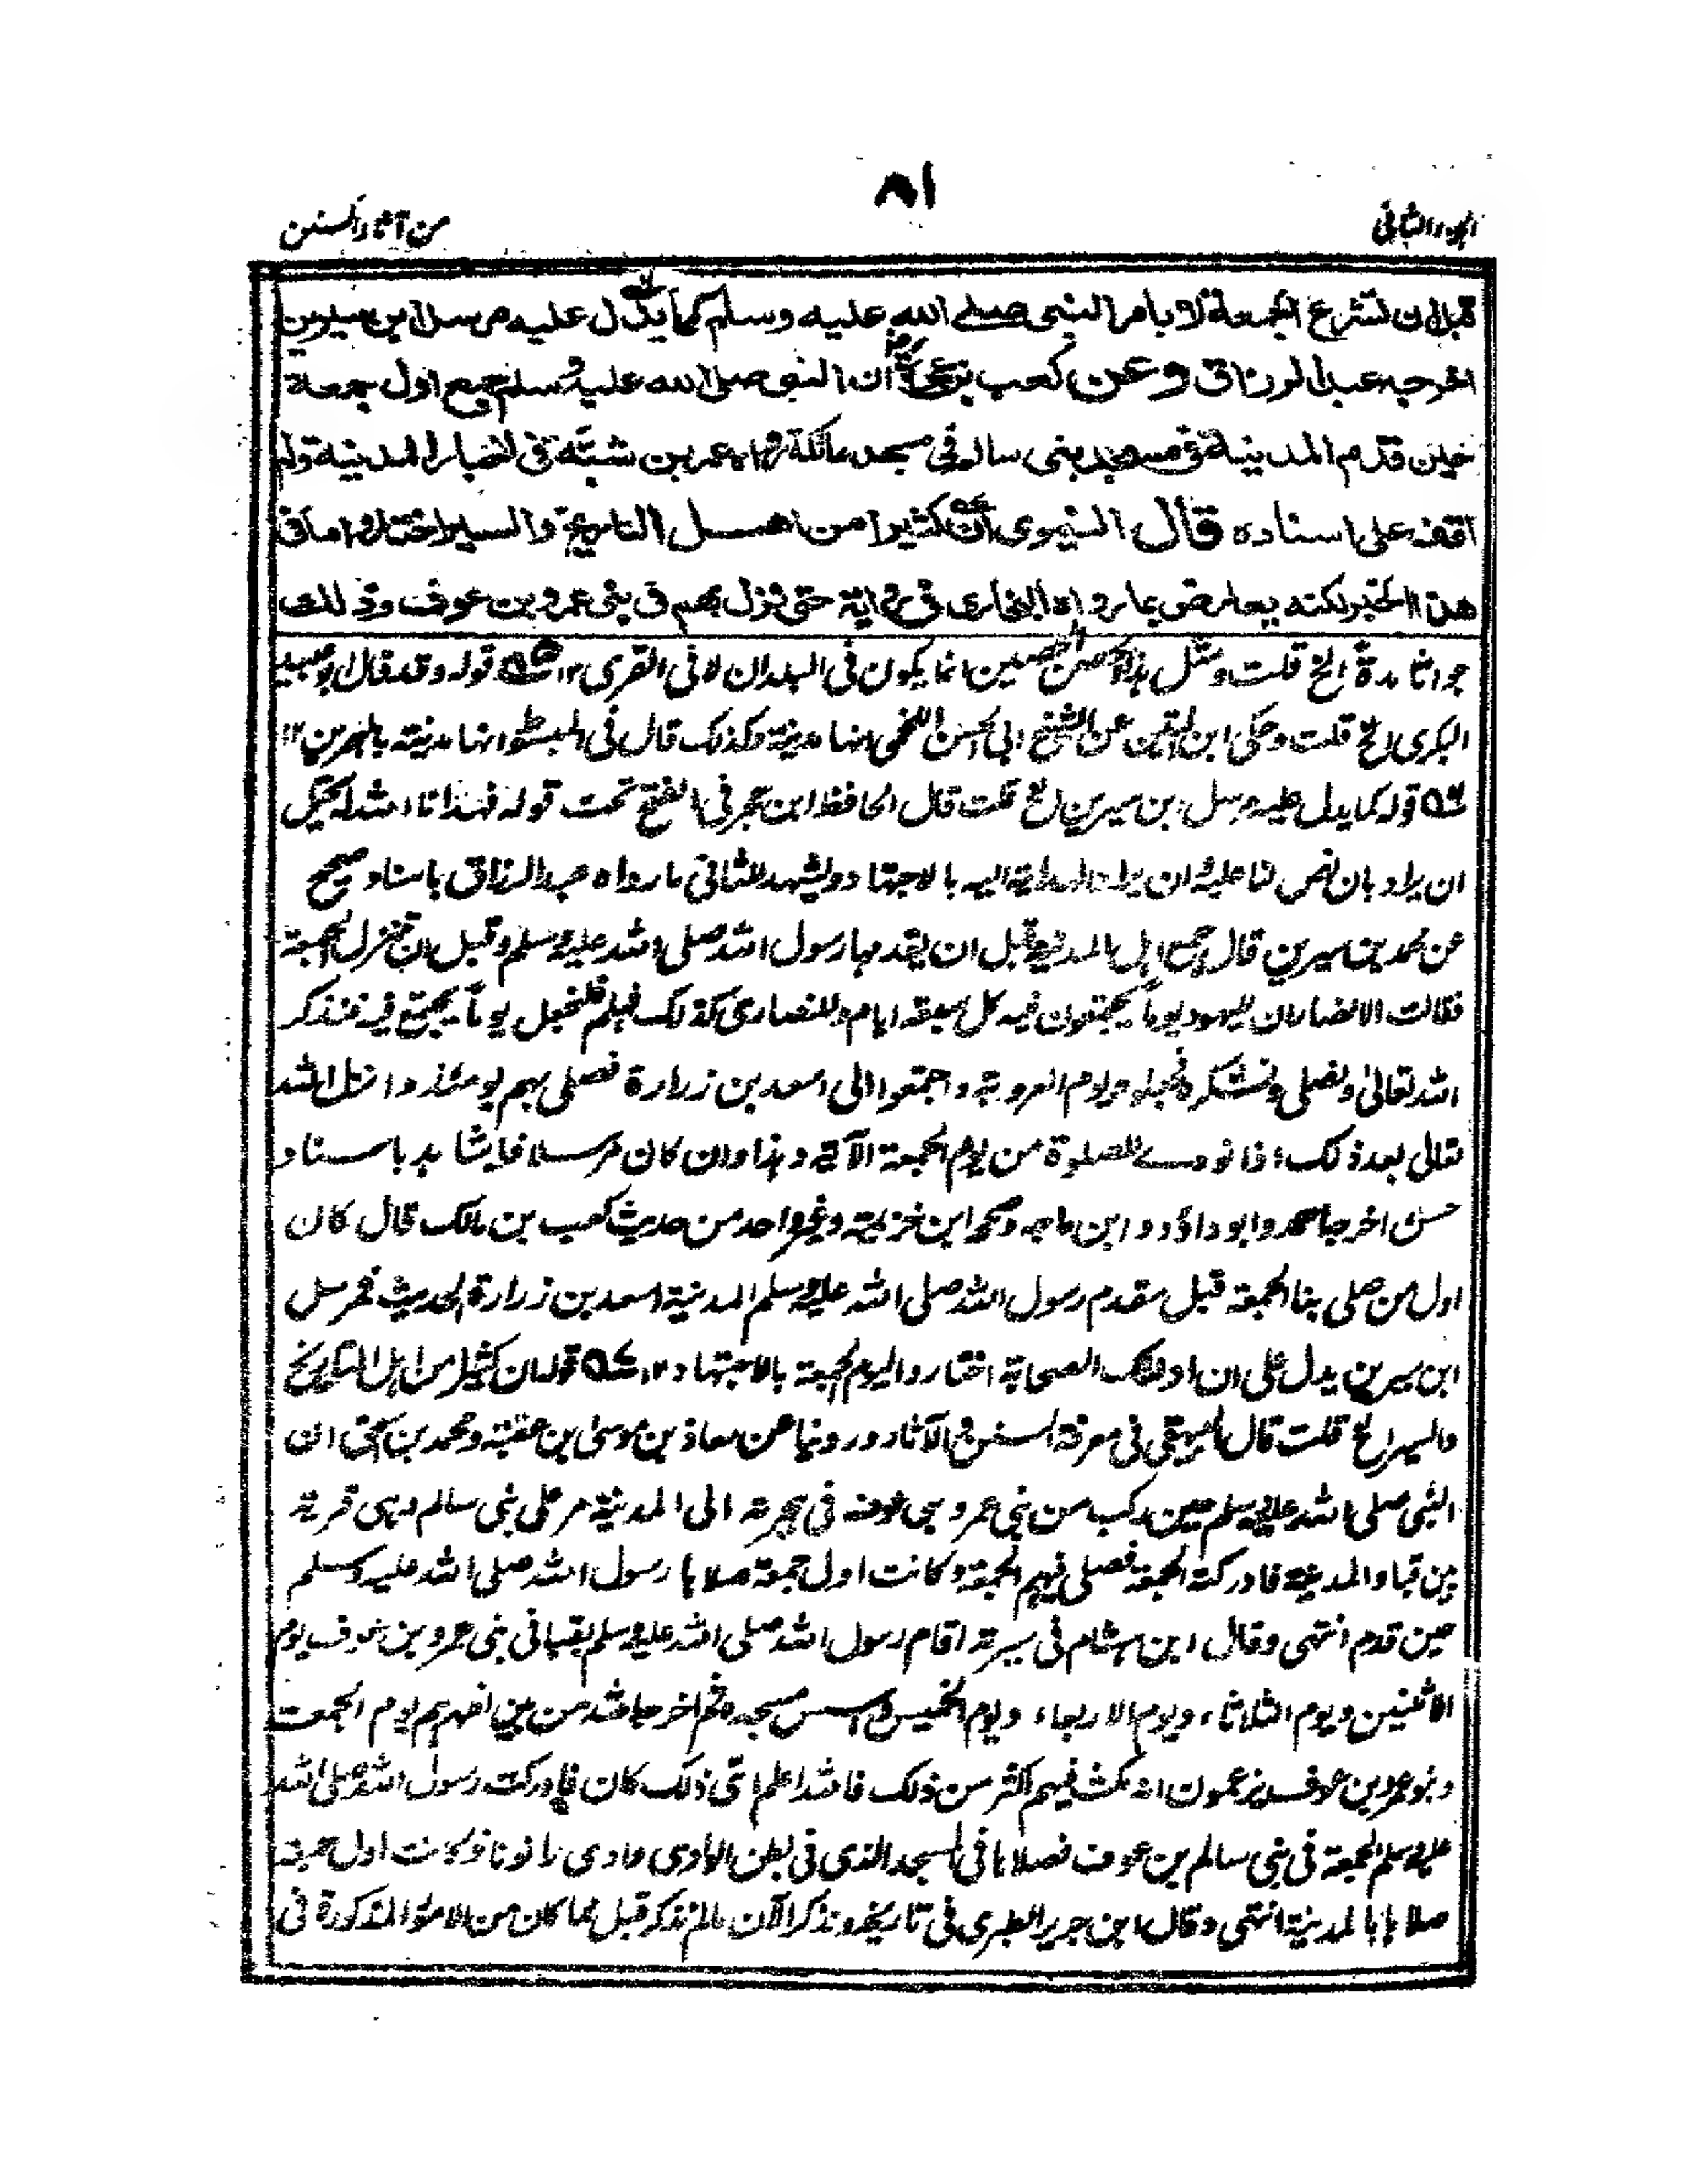 ٨١
الجزء الثانی
من آثار السنن
قبل ان تشرع الجمعة لا بامر النبی صلے الله عليه وسلم کما يدل عليه مرسل ابن سيرين
اخرجه عبد الرزاق وعن كعب بن عجرة رض ان النبی صلی الله عليه وسلم جمع اول جمعة
حين قدم المدينة فی مسجد بنی سالم فی مسجد عاتكة رواه عمر بن شبّة فی اخبار المدينة ولم
اقف علی اسناده قال النيموی ان كثيرا من اهل التاريخ والسير اختاروا ما فی
هذا الخبر لكنه يعارض بما رواه البخاری فی رواية حتی نزل بهم فی بنی عمرو بن عوف وذلك
جواثا مدة الخ قلت ومثل هذا الحصن الحصين انما يكون فی البلدان لا فی القری ١٢ قوله وقد قال ابو عبيد
البکری الخ قلت وحکی ابن التين عن الشيخ ابی الحسن اللخمی انها مدينة وكذلک قال فی المبسوط انها مدينة بالبحرين ١٢
قوله كما يدل عليه مرسل ابن سيرين الخ قلت قال الحافظ ابن حجر فی الفتح تحت قوله فهدانا الله له يحتمل
ان يراد بان نص لنا عليه وان يراد الهداية اليه بالاجتهاد ويشهد للثانی ما رواه عبد الرزاق باسناد صحيح
عن محمد بن سيرين قال جمع اهل المدينة قبل ان يقدمها رسول الله صلی الله عليه وسلم وقبل ان تنزل الجمعة
فقالت الانصار ان لليهود يوماً يجتمعون فيه كل سبعة ايام وللنصاری كذلک فهلم فلنجعل يوماً نجتمع فيه فنذكر
الله تعالیٰ ونصلی ونشكره فجعلوه يوم العروبة واجتمعوا الی اسعد بن زرارة فصلی بهم يومئذ وانزل الله
تعالی بعد ذلک اذا نودے للصلوة من يوم الجمعة الآية وهذا وان كان مرسلا فله شاهد باسناد
حسن اخرجه احمد وابو داؤد وابن ماجه وصححه ابن خزيمة وغير واحد من حديث كعب بن مالک قال كان
اول من صلی بنا الجمعة قبل مقدم رسول الله صلی الله عليه وسلم المدينة اسعد بن زرارة الحديث فمرسل
ابن سيرين يدل علی ان اولئک الصحابة اختاروا يوم الجمعة بالاجتهاد ١٢ قوله ان كثيرا من اهل التاريخ
والسير الخ قلت قال البيهقی فی معرفة السنن والآثار وروينا عن معاذ بن موسیٰ بن عقبة ومحمد بن اسحٰق ان
النبی صلی الله عليه وسلم حين ركب من بنی عمرو بن عوف فی هجرته الی المدينة مر علی بنی سالم وهی قرية
بين قبا والمدينة فادركته الجمعة فصلی فيهم الجمعة وكانت اول جمعة صلاها رسول الله صلی الله عليه وسلم
حين قدم انتهی وقال ابن هشام فی سيرته اقام رسول الله صلی الله عليه وسلم بقبا فی بنی عمرو بن عوف يوم
الاثنين ويوم الثلاثاء ويوم الاربعاء ويوم الخميس واسس مسجده ثم اخرجه الله من بين اظهرهم يوم الجمعة
وبنو عمرو بن عوف يزعمون انه مكث فيهم اكثر من ذلک فالله اعلم ای ذلک كان فادركت رسول الله صلی الله
عليه وسلم الجمعة فی بنی سالم بن عوف فصلاها فی المسجد الذی فی بطن الوادی وادی رانوناء وكانت اول جمعة
صلاها بالمدينة انتهی وقال ابن جرير الطبری فی تاريخه ونذكر الآن ما لم نذكر قبل مما كان من الامور المذكورة فی